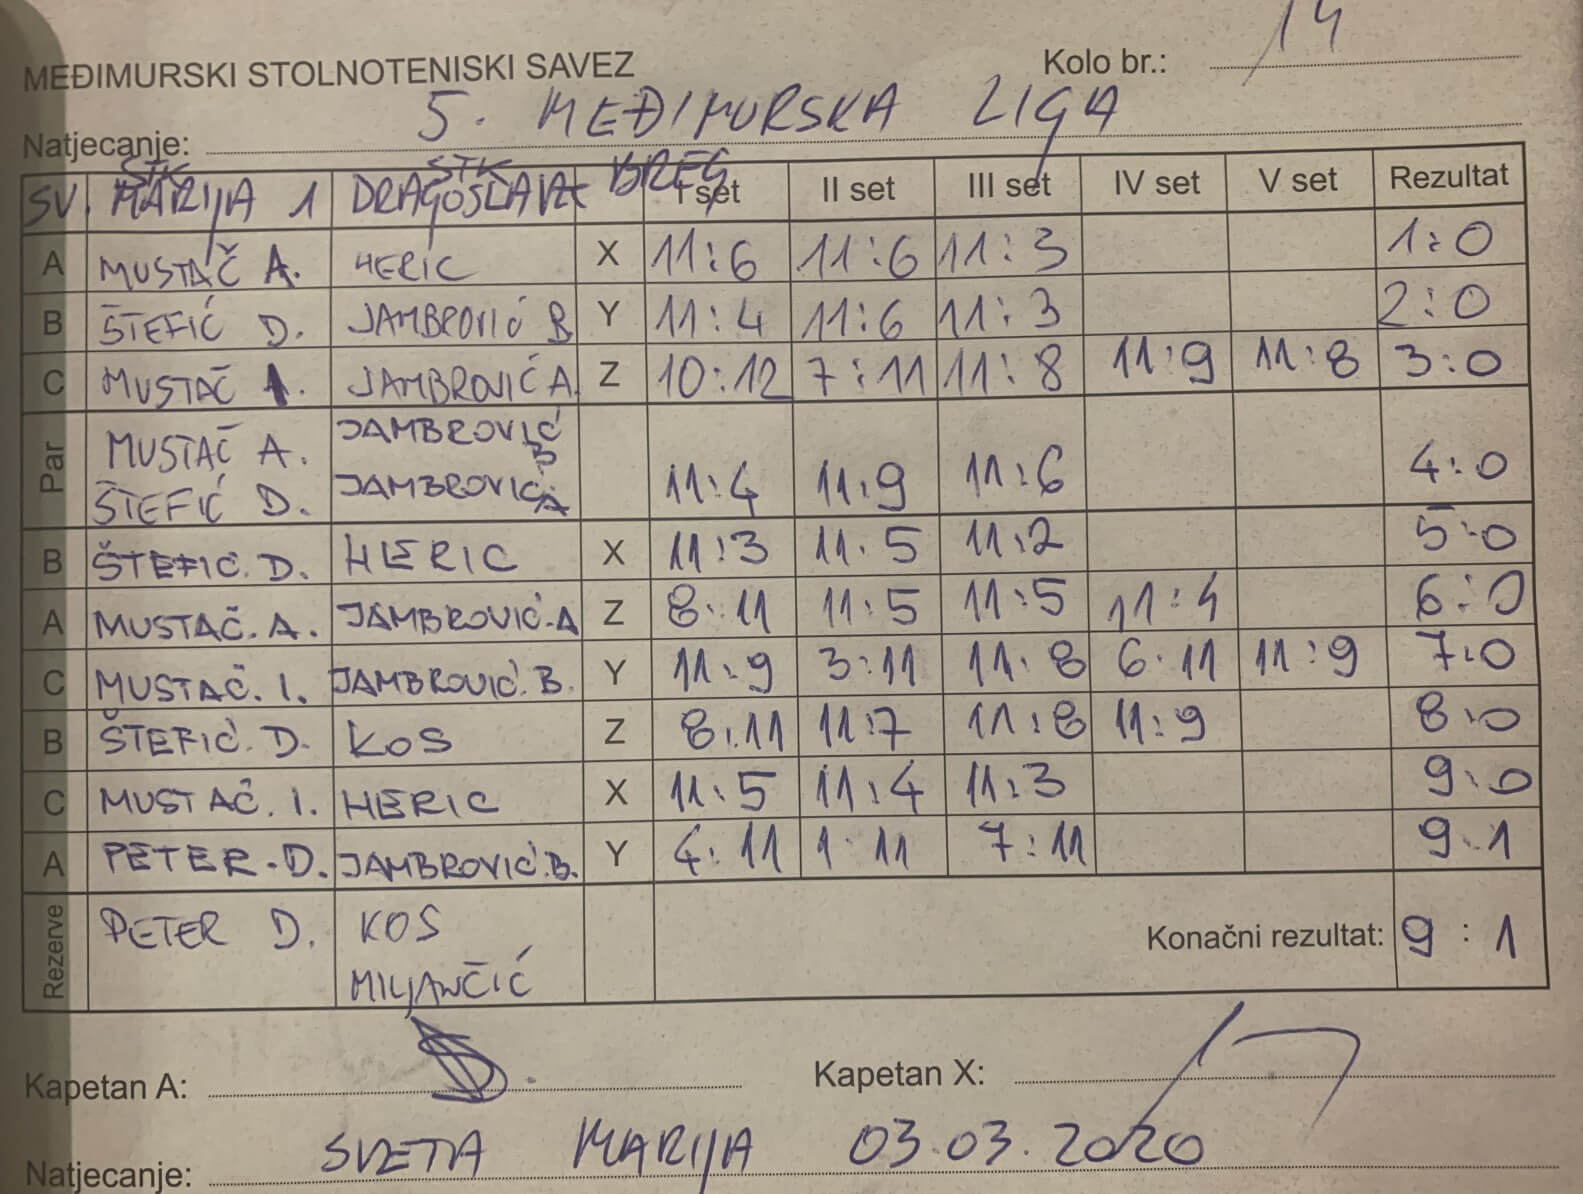 MEĐIMURSKI STOLNOTENISKI SAVEZ Kolo br.: 14
Natjecanje: 5. MEĐIMURSKA LIGA
SV. STK MARIJA 1 STK DRAGOSLAVEC BREG I set II set III set IV set V set Rezultat
A MUSTAČ A. HERIC X 11:6 11:6 11:3 1:0
B ŠTEFIĆ D. JAMBROVIĆ B Y 11:4 11:6 11:3 2:0
C MUSTAČ I. JAMBROVIĆ A Z 10:12 7:11 11:8 11:9 11:8 3:0
Par MUSTAČ A. JAMBROVIĆ B
ŠTEFIĆ D. JAMBROVIĆ A 11:4 11:9 11:6 4:0
B ŠTEFIĆ. D. HERIC X 11:3 11:5 11:2 5:0
A MUSTAČ. A. JAMBROVIĆ.A Z 8:11 11:5 11:5 11:4 6:0
C MUSTAČ. I. JAMBROVIĆ.B. Y 11:9 3:11 11:8 6:11 11:9 7:0
B ŠTEFIĆ. D. KOS Z 8:11 11:7 11:8 11:9 8:0
C MUSTAČ. I. HERIC X 11:5 11:4 11:3 9:0
A PETER.D. JAMBROVIĆ.B. Y 4:11 1:11 7:11 9:1
Rezerve PETER D. KOS Konačni rezultat: 9:1
MILJANČIĆ
Kapetan A: Kapetan X:
Natjecanje: SVETA MARIJA 03.03.2020